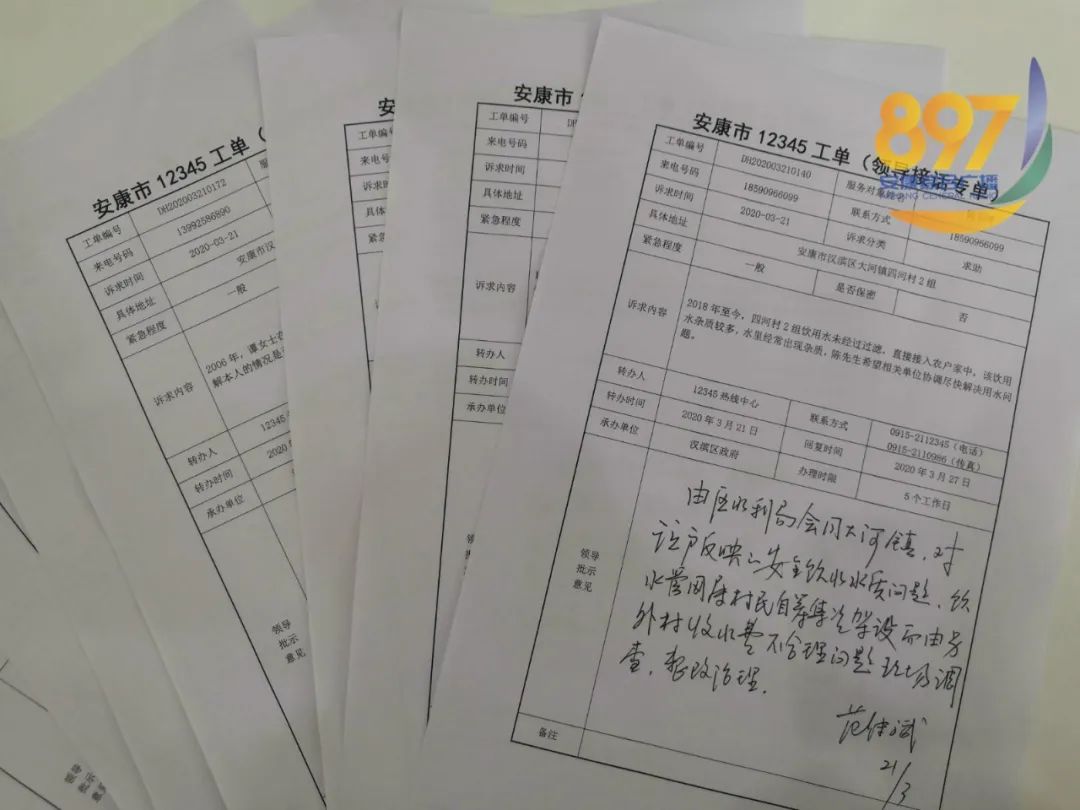 897
安康市 12345 工单（
工单编号
DH202003210172
来电号码
13992586890
诉求时间
2020-03-21
具体地址
安康市汉
紧急程度
一般
诉求内容
2006 年，谭女士在
解本人的情况是
转办人
12345
转办时间
2020
承办单位
领导
批示
意见
安
工单编号
来电号
诉求时
具体
紧急
安康市
工单编号
来电号码
诉求时间
具体地址
紧急程度
诉求内容
转办人
转办时间
承办单位
安康市 12345 工单（领导接话专单）
工单编号
DH202003210140
服务对象
来电号码
18590966099
联系方式
18590966099
诉求时间
2020-03-21
诉求分类
求助
具体地址
安康市汉滨区大河镇四河村 2 组
紧急程度
一般
是否保密
否
诉求内容
2018 年至今，四河村 2 组饮用水未经过过滤，直接接入农户家中，该饮用
水杂质较多，水里经常出现杂质，陈先生希望相关单位协调尽快解决用水问
题。
转办人
12345 热线中心
联系方式
0915-2112345（电话）
0915-2110986（传真）
转办时间
2020 年 3 月 21 日
回复时间
2020 年 3 月 27 日
承办单位
汉滨区政府
办理时限
5 个工作日
领导
批示
意见
由区水利局会同大河镇，对
该户反映的安全饮水水质问题、饮
水管网属村民自筹集资架设而由另
外村收水费不合理问题现场调
查，整改治理。
范传斌
21/3
备注
领导
批示
意见